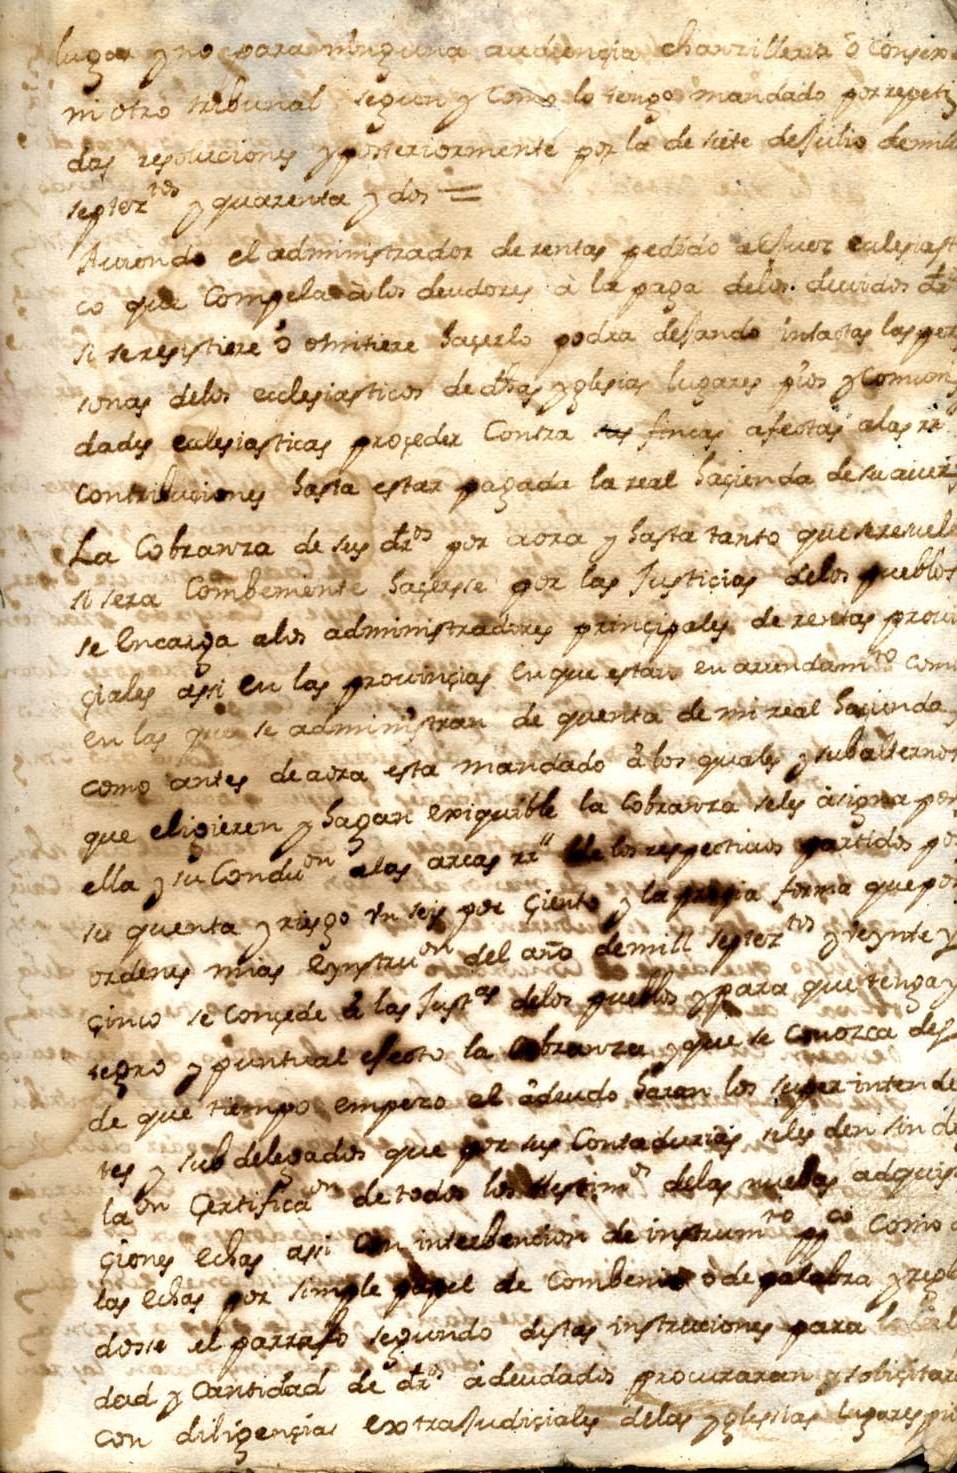 lugar y no para ninguna audiencia chanzilleria ô Consexo
ni otro tribunal segun y Como lo tengo mandado por repeti
das resoluciones y posteriormente por la de siete de Julio de mill
septez.tos y quarenta y dos =
Auiendo el administrador de rentas pedido al Juez eclesiast
co que Compela â los deudores â la paga delos deuidos dr.os
si se resistiere ô omitiere haçerlo podra dejando intactas las per
sonas delos ecclesiasticos de dhas yglesias lugares pios y Comuni
dades eclesiasticas proçeder Contra sus fincas afectas alas rr.
Contribuçiones hasta estar pagada la real haçienda de su auer
La Cobranza de sus dr.os por aora y hasta tanto que se resuel
si sera Combeniente haçerse por las Justiçias delos pueblos
se encarga alos administradores prinçipales de rentas provi
çiales assi en las provinçias en que estan en arrendam.to como
en las que se administran de quenta de mi real haçienda
como antes de aora esta mandado â los quales y subalternos
que eligieren y hagan exiquible la Cobranza seles âsigna por
ella y su Condu.on alas arcas rr.s de los respectivos partidos po
su quenta y riesgo Un seis por çiento y la propia forma que por
ordenes mias e ynstru.on del año de mill septez.tos y veynte y
çinco se Conçede â las Just.as delos pueblos y para que tenga
segro y puntual efecto la Cobranza y que se Conozca des
de que tiempo empezo el âdeudo haran los superintende
tes y subdelegados que por sus Contadurias seles den sin de
la.on Çertifica.on de todos los testim.os delas nuebas adquisi
çiones echas assi Con interbençion de instrum.to pp.co Como
las echas por simple papel de Combenio ô de palabra y regla
dosse el parrafo segundo destas instrucciones para la cali
dad y Cantidad de dr.os âdeudados procuraran y soliçitaran
con diligençias extraJudiçiales delas yglesias lugares pi